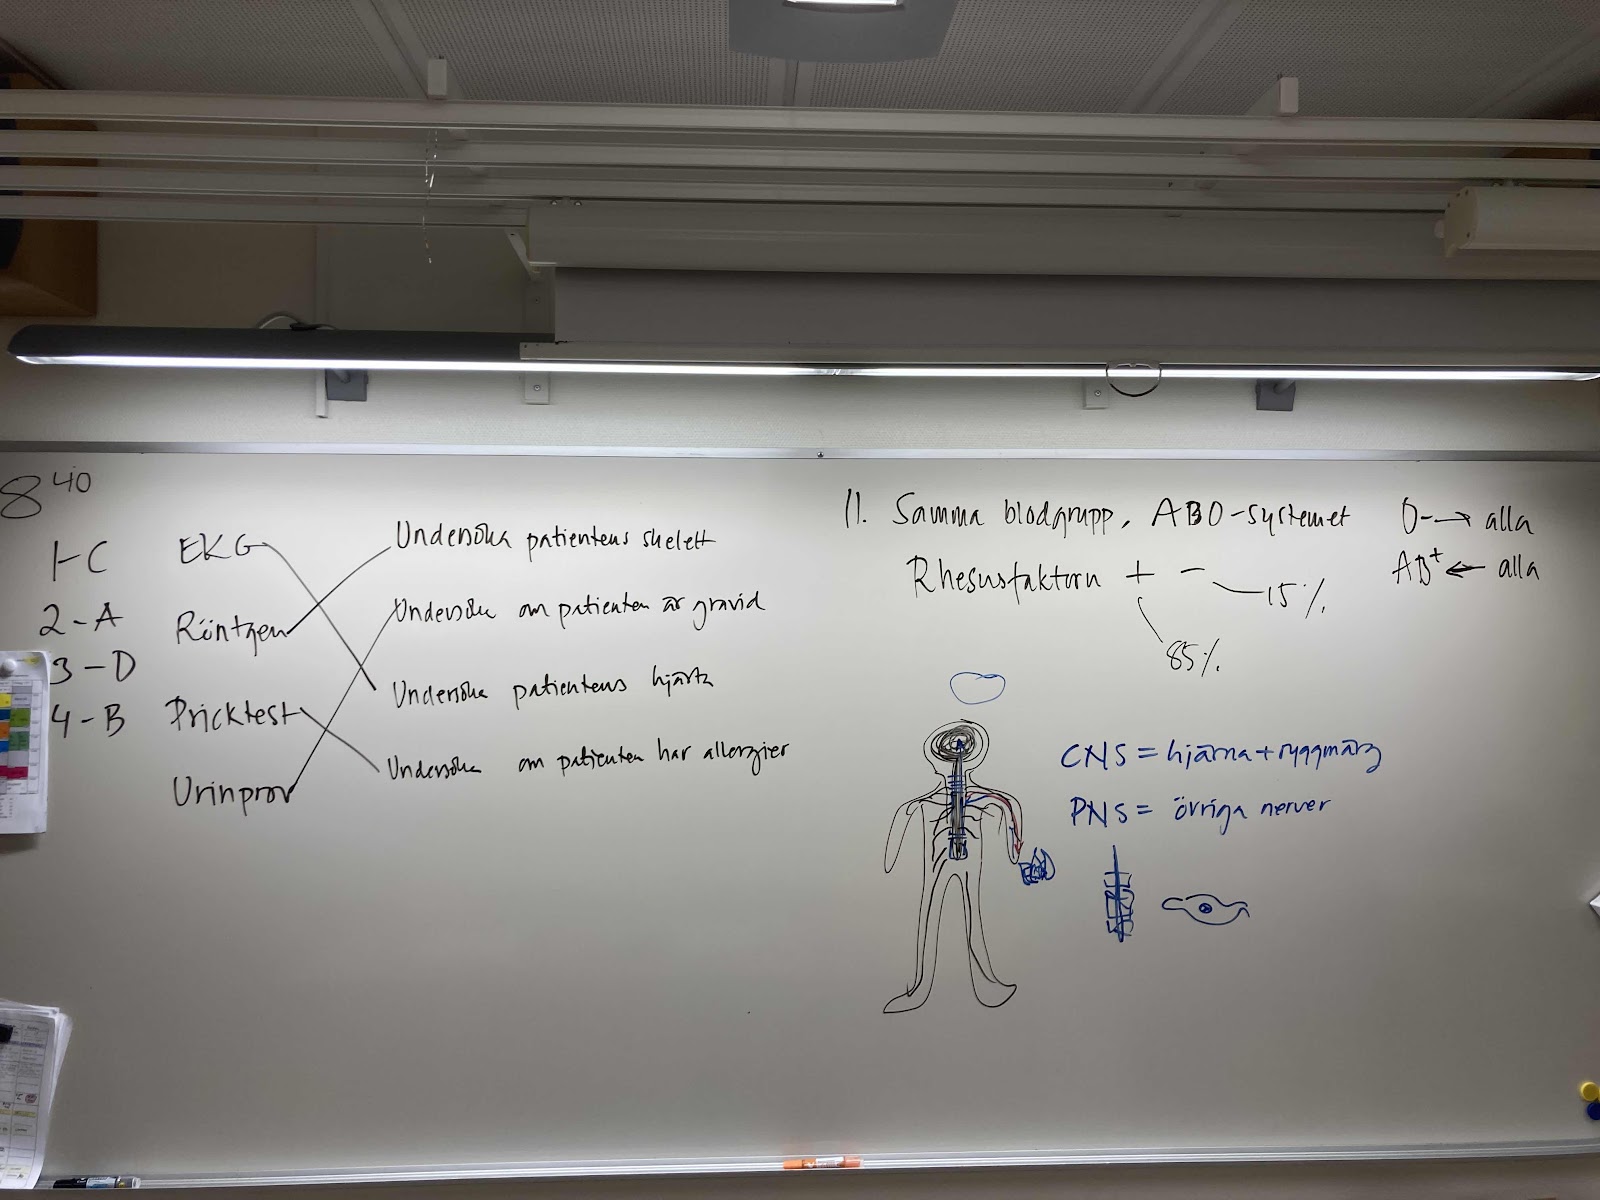 8⁴⁰
1-C
2-A
3-D
4-B
EKG
Röntgen
Pricktest
Urinprov
Undersöka patientens skelett
Undersöka om patienten är gravid
Undersöka patientens hjärta
Undersöka om patienten har allergier
11. Samma blodgrupp, ABO-systemet
Rhesusfaktorn + -
15%
85%
O- → alla
AB+ ← alla
CNS = hjärna + ryggmärg
PNS = övriga nerver